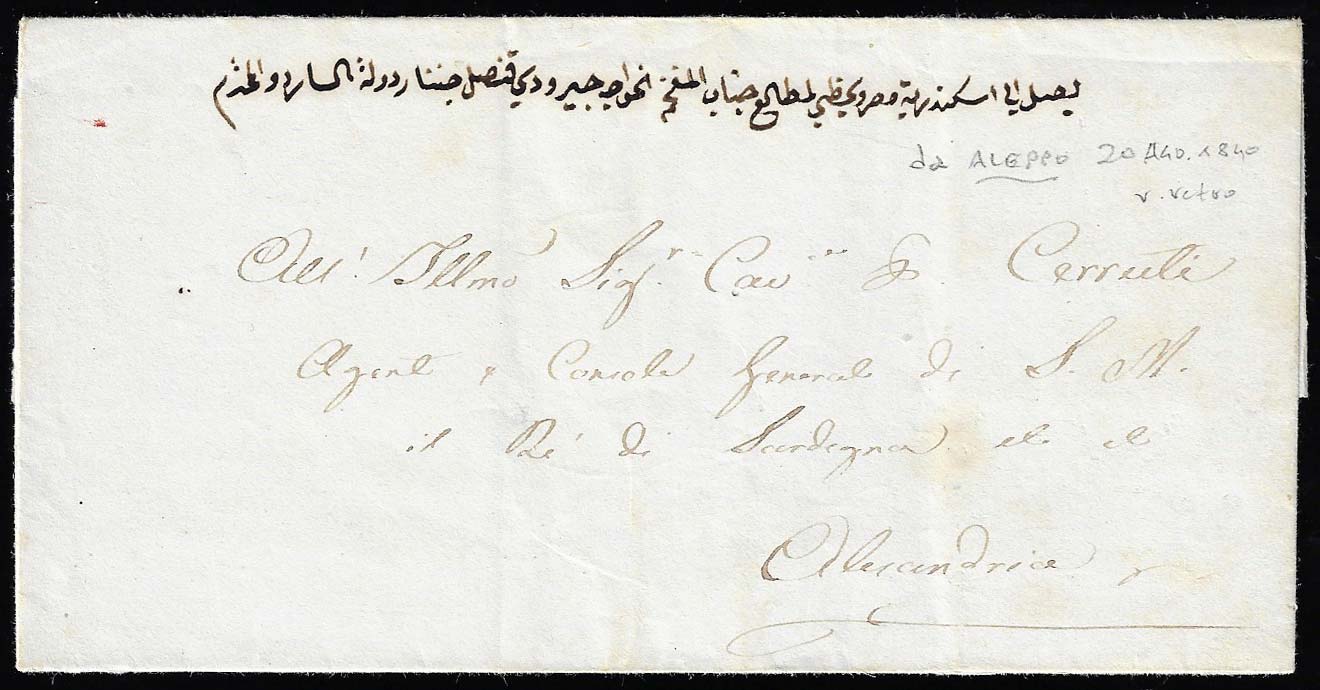 يصل الي اسكندرية مصر ويحظي لمطالع جناب المفخم الخواجه جيرودي قنصل جننار دولة السارد والمحترم
da ALEPPO 20 AGO. 1840
v. retro
All' Illmo Sigr. Cav. Cerruti
Agente e Console Generale di S. M.
il Ré di Sardegna etc etc
Alessandria